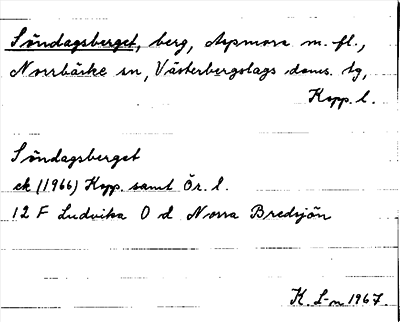 Söndagsberget, berg, Aspmora m. fl.,
Norrbärke sn, Västerbergslags doms. tg,
Kopp. l.
Söndagsberget
ek (1966) Kopp. samt Ör. l.
12 F Ludvika O d Norra Bredsjön
K. L-n 1967.